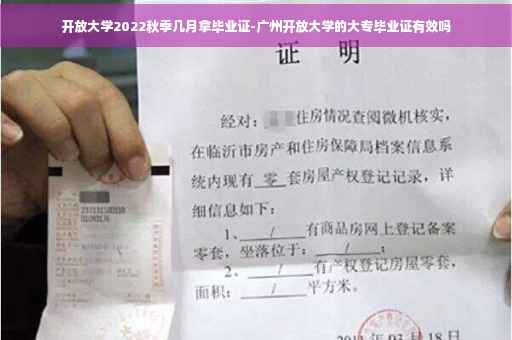 开放大学2022秋季几月拿毕业证-广州开放大学的大专毕业证有效吗
证 明
经对：住房情况查阅微机核实，
在临沂市房产和住房保障局档案信息系
统内现有 零 套房屋产权登记记录，详
细信息如下：
1、 / 有商品房网上登记备案
零套，坐落位于： / ；
2、 / 有产权登记房屋零套，
面积： / 平方米。
年 03 月 18 日